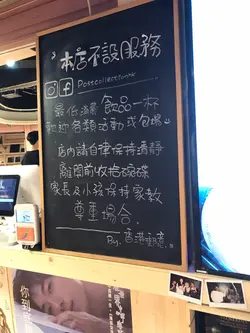 本店不設服務
最低消費 飲品一杯
歡迎各類活動或包場
店內請自律保持清靜
離開前收拾碗碟
家長及小孩保持家教
尊重場合
By. 香港
你到